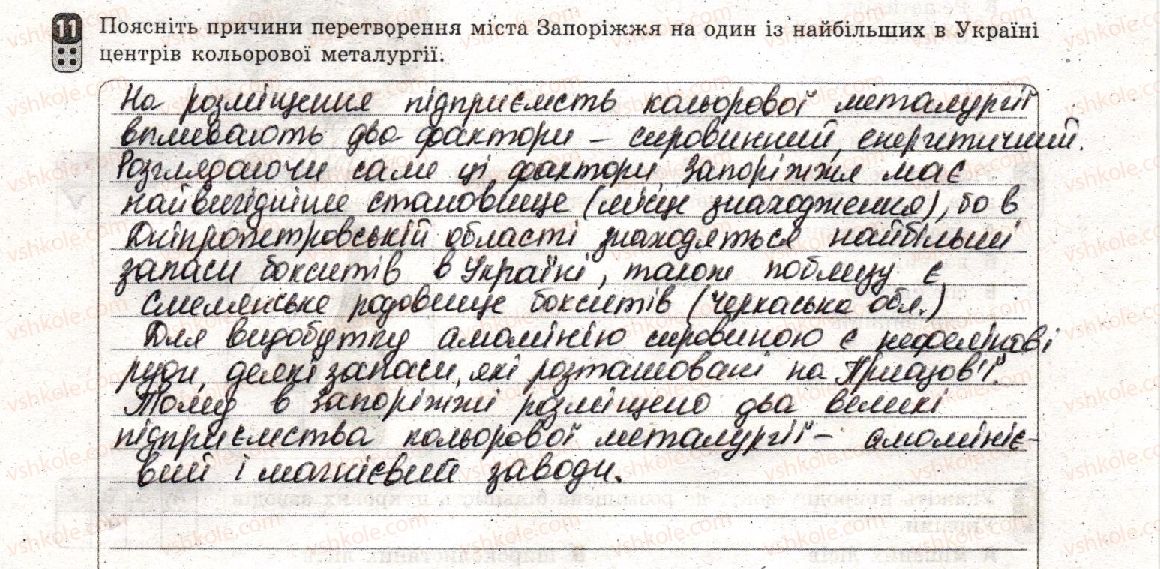 11 Поясніть причини перетворення міста Запоріжжя на один із найбільших в Україні
центрів кольорової металургії.
На розміщення підприємств кольорової металургії
впливають два фактори – сировинний, енергетичний.
Розглядаючи саме ці фактори, Запоріжжя має
найвигідніше становище (місце знаходження), бо в
Дніпропетровській області знаходяться найбільші
запаси бокситів в Україні, також поблизу є
Смелянське родовище бокситів (Черкаська обл.)
Для видобутку алюмінію сировиною є нефелінові
руди, деякі запаси, які розташовані на Приазов'ї.
Тому в Запоріжжі розміщено два великі
підприємства кольорової металургії – алюмініє-
вий і магнієвий заводи.
vshkole.com